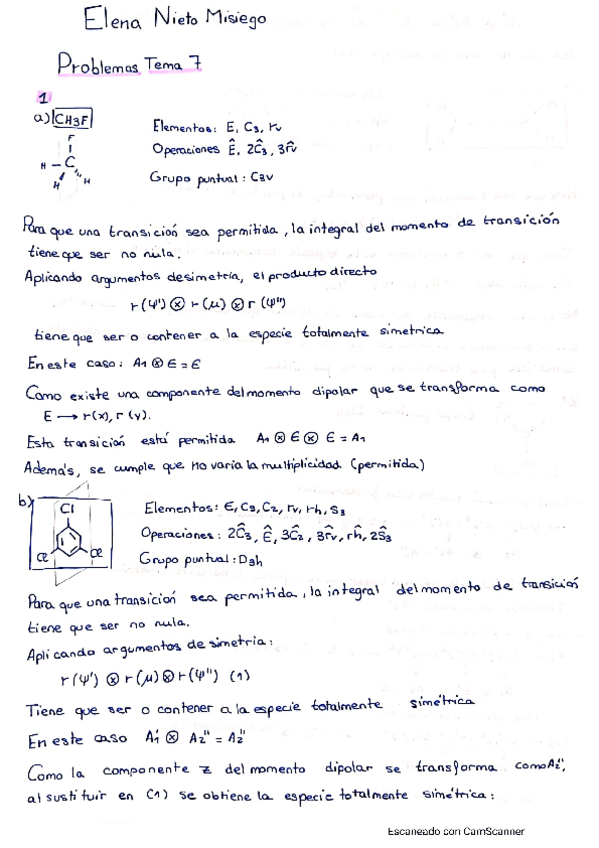 Elena Nieto Misiego
Problemas Tema 7
1
a) CH3F
F
H - C
H H
Elementos: E, C3, σv
Operaciones Ê, 2Ĉ3, 3σ̂v
Grupo puntual: C3v
Para que una transición sea permitida, la integral del momento de transición
tiene que ser no nula.
Aplicando argumentos de simetría, el producto directo
Γ(Ψ') ⊗ Γ(μ) ⊗ Γ(Ψ'')
tiene que ser o contener a la especie totalmente simetrica
En este caso: A1 ⊗ E = E
Como existe una componente del momento dipolar que se transforma como
E → Γ(x), Γ(y).
Esta transición está permitida A1 ⊗ E ⊗ E = A1
Además, se cumple que no varia la multiplicidad (permitida)
b)
Cl
Cl Cl
Elementos: E, C3, C2, σv, σh, S3
Operaciones: 2Ĉ3, Ê, 3Ĉ2, 3σ̂v, σ̂h, 2Ŝ3
Grupo puntual: D3h
Para que una transición sea permitida, la integral del momento de transición
tiene que ser no nula.
Aplicando argumentos de simetria:
Γ(Ψ') ⊗ Γ(μ) ⊗ Γ(Ψ'') (1)
Tiene que ser o contener a la especie totalmente simétrica
En este caso A1' ⊗ A2'' = A2''
Como la componente z del momento dipolar se transforma como A2'',
al sustituir en (1) se obtiene la especie totalmente simétrica:
Escaneado con CamScanner